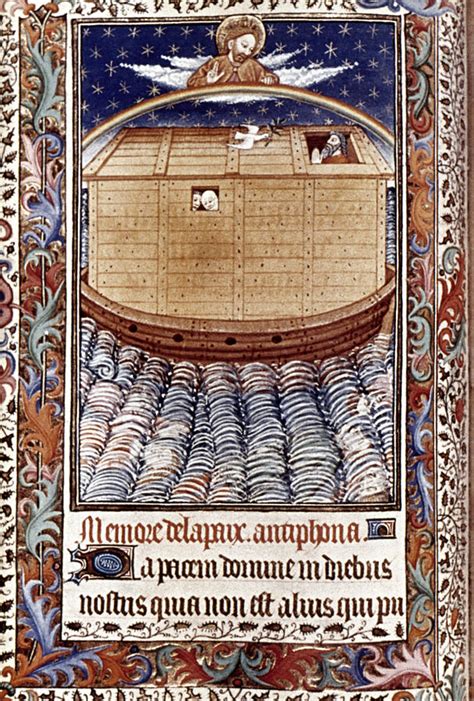 Memore de la paix. antiphona
Da pacem domine in diebus
nostris quia non est alius qui pu